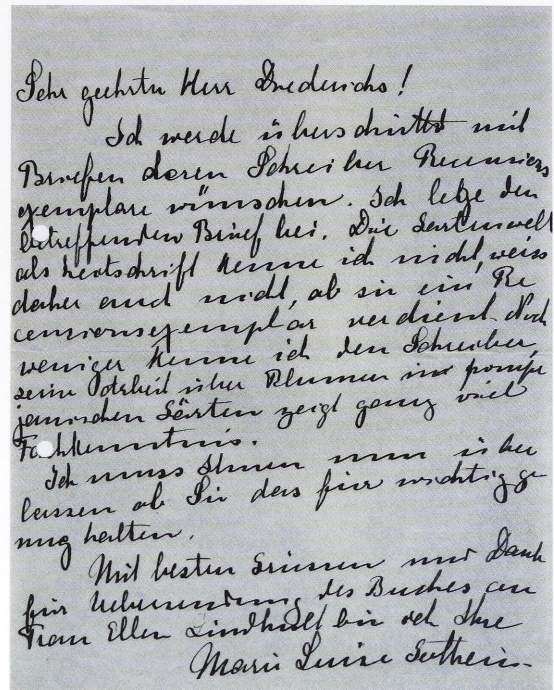 Sehr geehrter Herr Diederichs!
Ich werde überschüttet mit
Briefen deren Schreiber Recensions
exemplare wünschen. Ich lege den
betreffenden Brief bei. Die Gartenwelt
als Zeitschrift kenne ich nicht, weiss
daher auch nicht, ob sie ein Re
censionsexemplar verdient. Noch
weniger kenne ich den Schreiber,
seine Arbeit über Blumen in pompe
janischen Gärten zeigt ganz viel
Fachkenntnis.
Ich muss Ihnen nun über
lassen ob Sie das für wichtig ge
nug halten.
Mit besten Grüssen und Dank
für Uebersendung des Buches an
Frau Ellen Lindhall bin ich Ihre
Marie Luise Gothein.